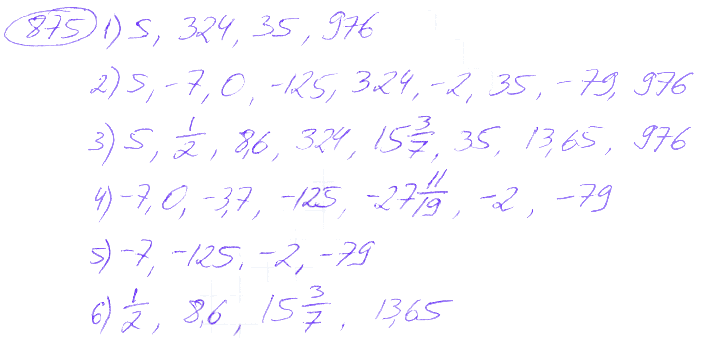 875 1) 5, 324, 35, 976
2) 5, -7, 0, -125, 324, -2, 35, -79, 976
3) 5, 1/2, 8,6, 324, 15 3/7, 35, 13,65, 976
4) -7, 0, -3,7, -125, -27 11/19, -2, -79
5) -7, -125, -2, -79
6) 1/2, 8,6, 15 3/7, 13,65